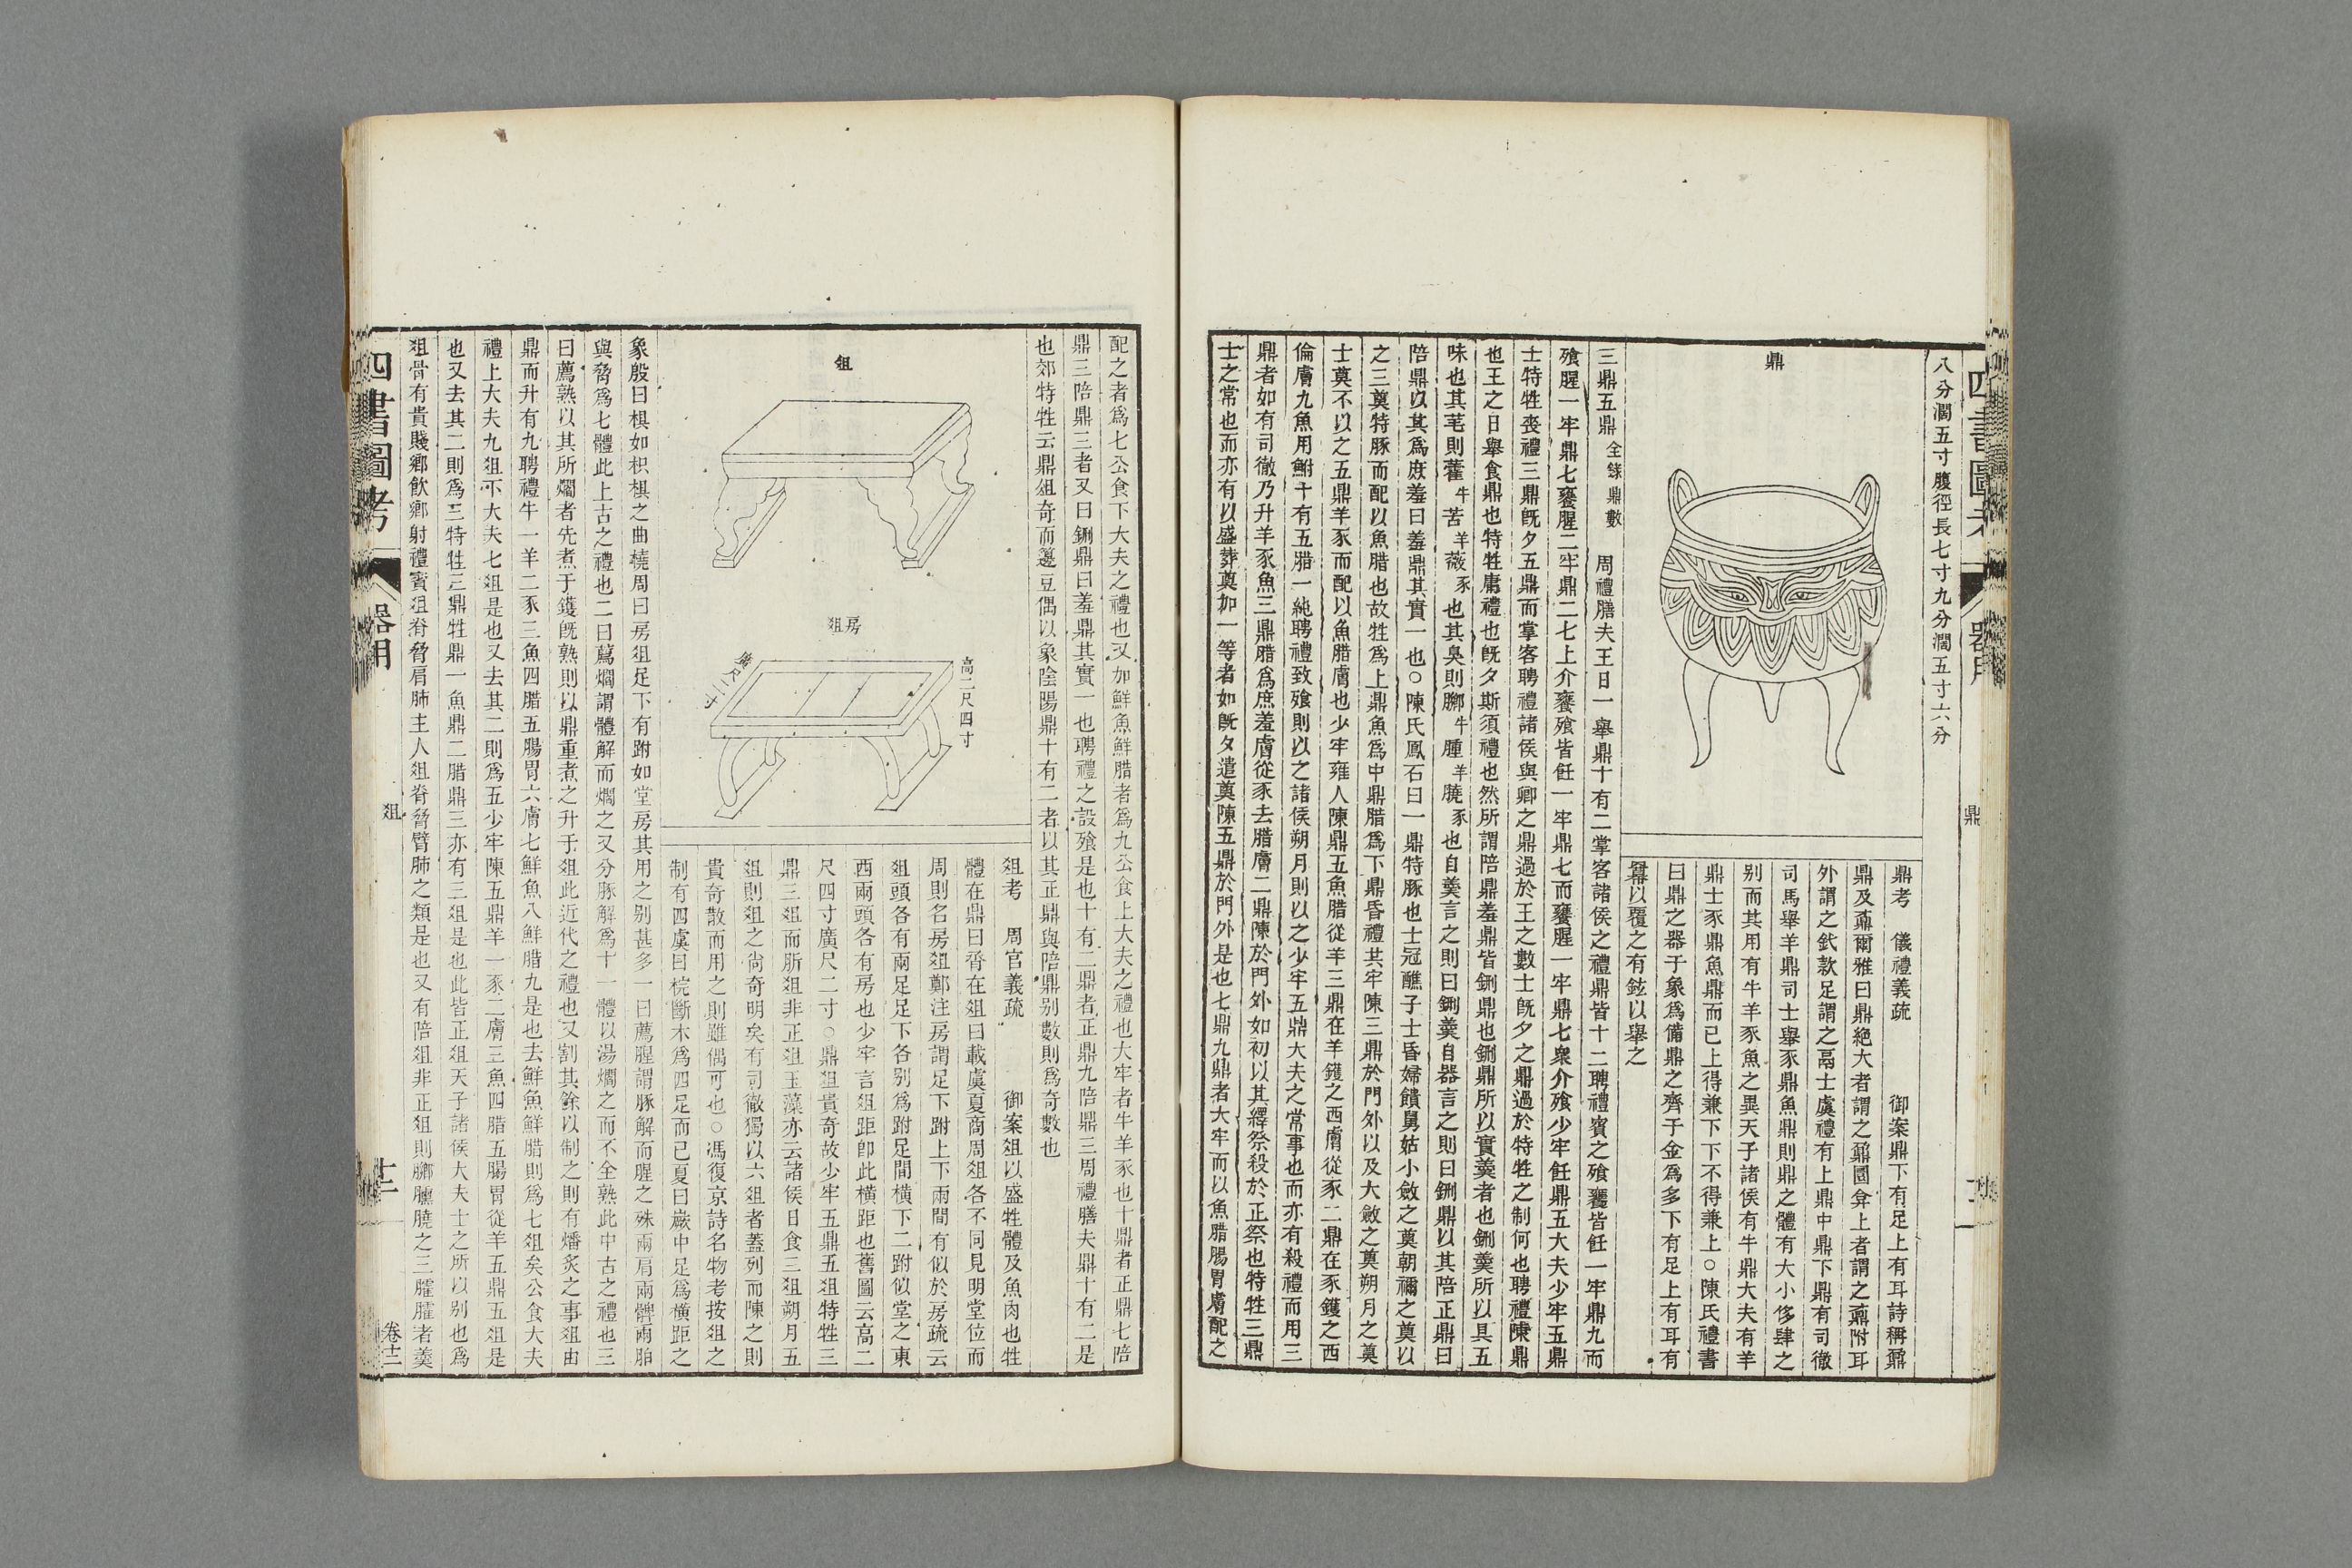 八分濶五寸腹徑長七寸九分濶五寸六分
鼎
鼎考　儀禮義疏　御案鼎下有足上有耳詩稱鼐
鼎及鼒爾雅曰鼎絶大者謂之鼐圜弇上者謂之鼒附耳
外謂之釴款足謂之鬲士虞禮有上鼎中鼎下鼎有司徹
司馬舉羊鼎司士舉豕鼎魚鼎則鼎之體有大小侈肆之
别而其用有牛羊豕魚之異天子諸侯有牛鼎大夫有羊
鼎士豕鼎魚鼎而已上得兼下下不得兼上○陳氏禮書
曰鼎之器于象爲備鼎之齊于金爲多下有足上有耳有
鼏以覆之有鉉以舉之
三鼎五鼎全錄鼎數　周禮膳夫王日一舉鼎十有二掌客諸侯之禮鼎皆十二聘禮賓之飧饔皆飪一牢鼎九而
飧腥一牢鼎七饔腥二牢鼎二七上介饔飧皆飪一牢鼎七而饔腥一牢鼎七衆介飧少牢飪鼎五大夫少牢五鼎
士特牲喪禮三鼎旣夕五鼎而掌客聘禮諸侯與卿之鼎過於王之數士旣夕之鼎過於特牲之制何也聘禮陳鼎
也王之日舉食鼎也特牲庸禮也旣夕斯須禮也然所謂陪鼎羞鼎皆鉶鼎也鉶鼎所以實羹者也鉶羹所以具五
味也其芼則藿牛苦羊薇豕也其臭則膷牛臐羊膮豕也自羹言之則曰鉶羹自器言之則曰鉶鼎以其陪正鼎曰
陪鼎以其爲庶羞曰羞鼎其實一也○陳氏鳳石曰一鼎特豚也士冠醮子士昏婦饋舅姑小斂之奠朝禰之奠以
之三奠特豚而配以魚腊也故牲爲上鼎魚爲中鼎腊爲下鼎昏禮其牢陳三鼎於門外以及大斂之奠朔月之奠
士奠不以之五鼎羊豕而配以魚腊膚也少牢雍人陳鼎五魚腊從羊三鼎在羊鑊之西膚從豕二鼎在豕鑊之西
倫膚九魚用鮒十有五腊一純聘禮致飧則以之諸侯朔月則以之少牢五鼎大夫之常事也而亦有殺禮而用三
鼎者如有司徹乃升羊豕魚三鼎腊爲庶羞膚從豕去腊膚二鼎陳於門外如初以其繹祭殺於正祭也特牲三鼎
士之常也而亦有以盛葬奠加一等者如旣夕遣奠陳五鼎於門外是也七鼎九鼎者大牢而以魚腊腸胃膚配之
配之者爲七公食下大夫之禮也又加鮮魚鮮腊者爲九公食上大夫之禮也大牢者牛羊豕也十鼎者正鼎七陪
鼎三陪鼎三者又曰鉶鼎曰羞鼎其實一也聘禮之設飧是也十有二鼎者正鼎九陪鼎三周禮膳夫鼎十有二是
也郊特牲云鼎俎奇而籩豆偶以象陰陽鼎十有二者以其正鼎與陪鼎别數則爲奇數也
俎
房俎
高二尺四寸
廣尺二寸
俎考　周官義疏　御案俎以盛牲體及魚肉也牲
體在鼎曰脀在俎曰載虞夏商周俎各不同見明堂位而
周則名房俎鄭注房謂足下跗上下兩間有似於房疏云
俎頭各有兩足足下各别爲跗足間橫下二跗似堂之東
西兩頭各有房也少牢言俎距卽此橫距也舊圖云高二
尺四寸廣尺二寸○鼎俎貴奇故少牢五鼎五俎特牲三
鼎三俎而肵俎非正俎玉藻亦云諸侯日食三俎朔月五
俎則俎之尙奇明矣有司徹獨以六俎者蓋列而陳之則
貴奇散而用之則雖偶可也○馮復京詩名物考按俎之
制有四虞曰梡斷木爲四足而已夏曰嶡中足爲橫距之
象殷曰椇如枳椇之曲橈周曰房俎足下有跗如堂房其用之别甚多一曰薦腥謂豚解而腥之殊兩肩兩髀兩胉
與脅爲七體此上古之禮也二曰薦爓謂體解而爓之又分豚解爲十一體以湯爓之而不全熟此中古之禮也三
曰薦熟以其所爓者先煮于鑊旣熟則以鼎重煮之升于俎此近代之禮也又割其餘以制之則有燔炙之事俎由
鼎而升有九聘禮牛一羊二豕三魚四腊五腸胃六膚七鮮魚八鮮腊九是也去鮮魚鮮腊則爲七俎矣公食大夫
禮上大夫九俎下大夫七俎是也又去其二則爲五少牢陳五鼎羊一豕二膚三魚四腊五腸胃從羊五鼎五俎是
也又去其二則爲三特牲三鼎牲鼎一魚鼎二腊鼎三亦有三俎是也此皆正俎天子諸侯大夫士之所以别也爲
俎骨有貴賤鄕飲鄕射禮賓俎脊脅肩肺主人俎脊脅臂肺之類是也又有陪俎非正俎則膷臐膮之三臛臛者羹
四書圖考　器用　俎　卷十二